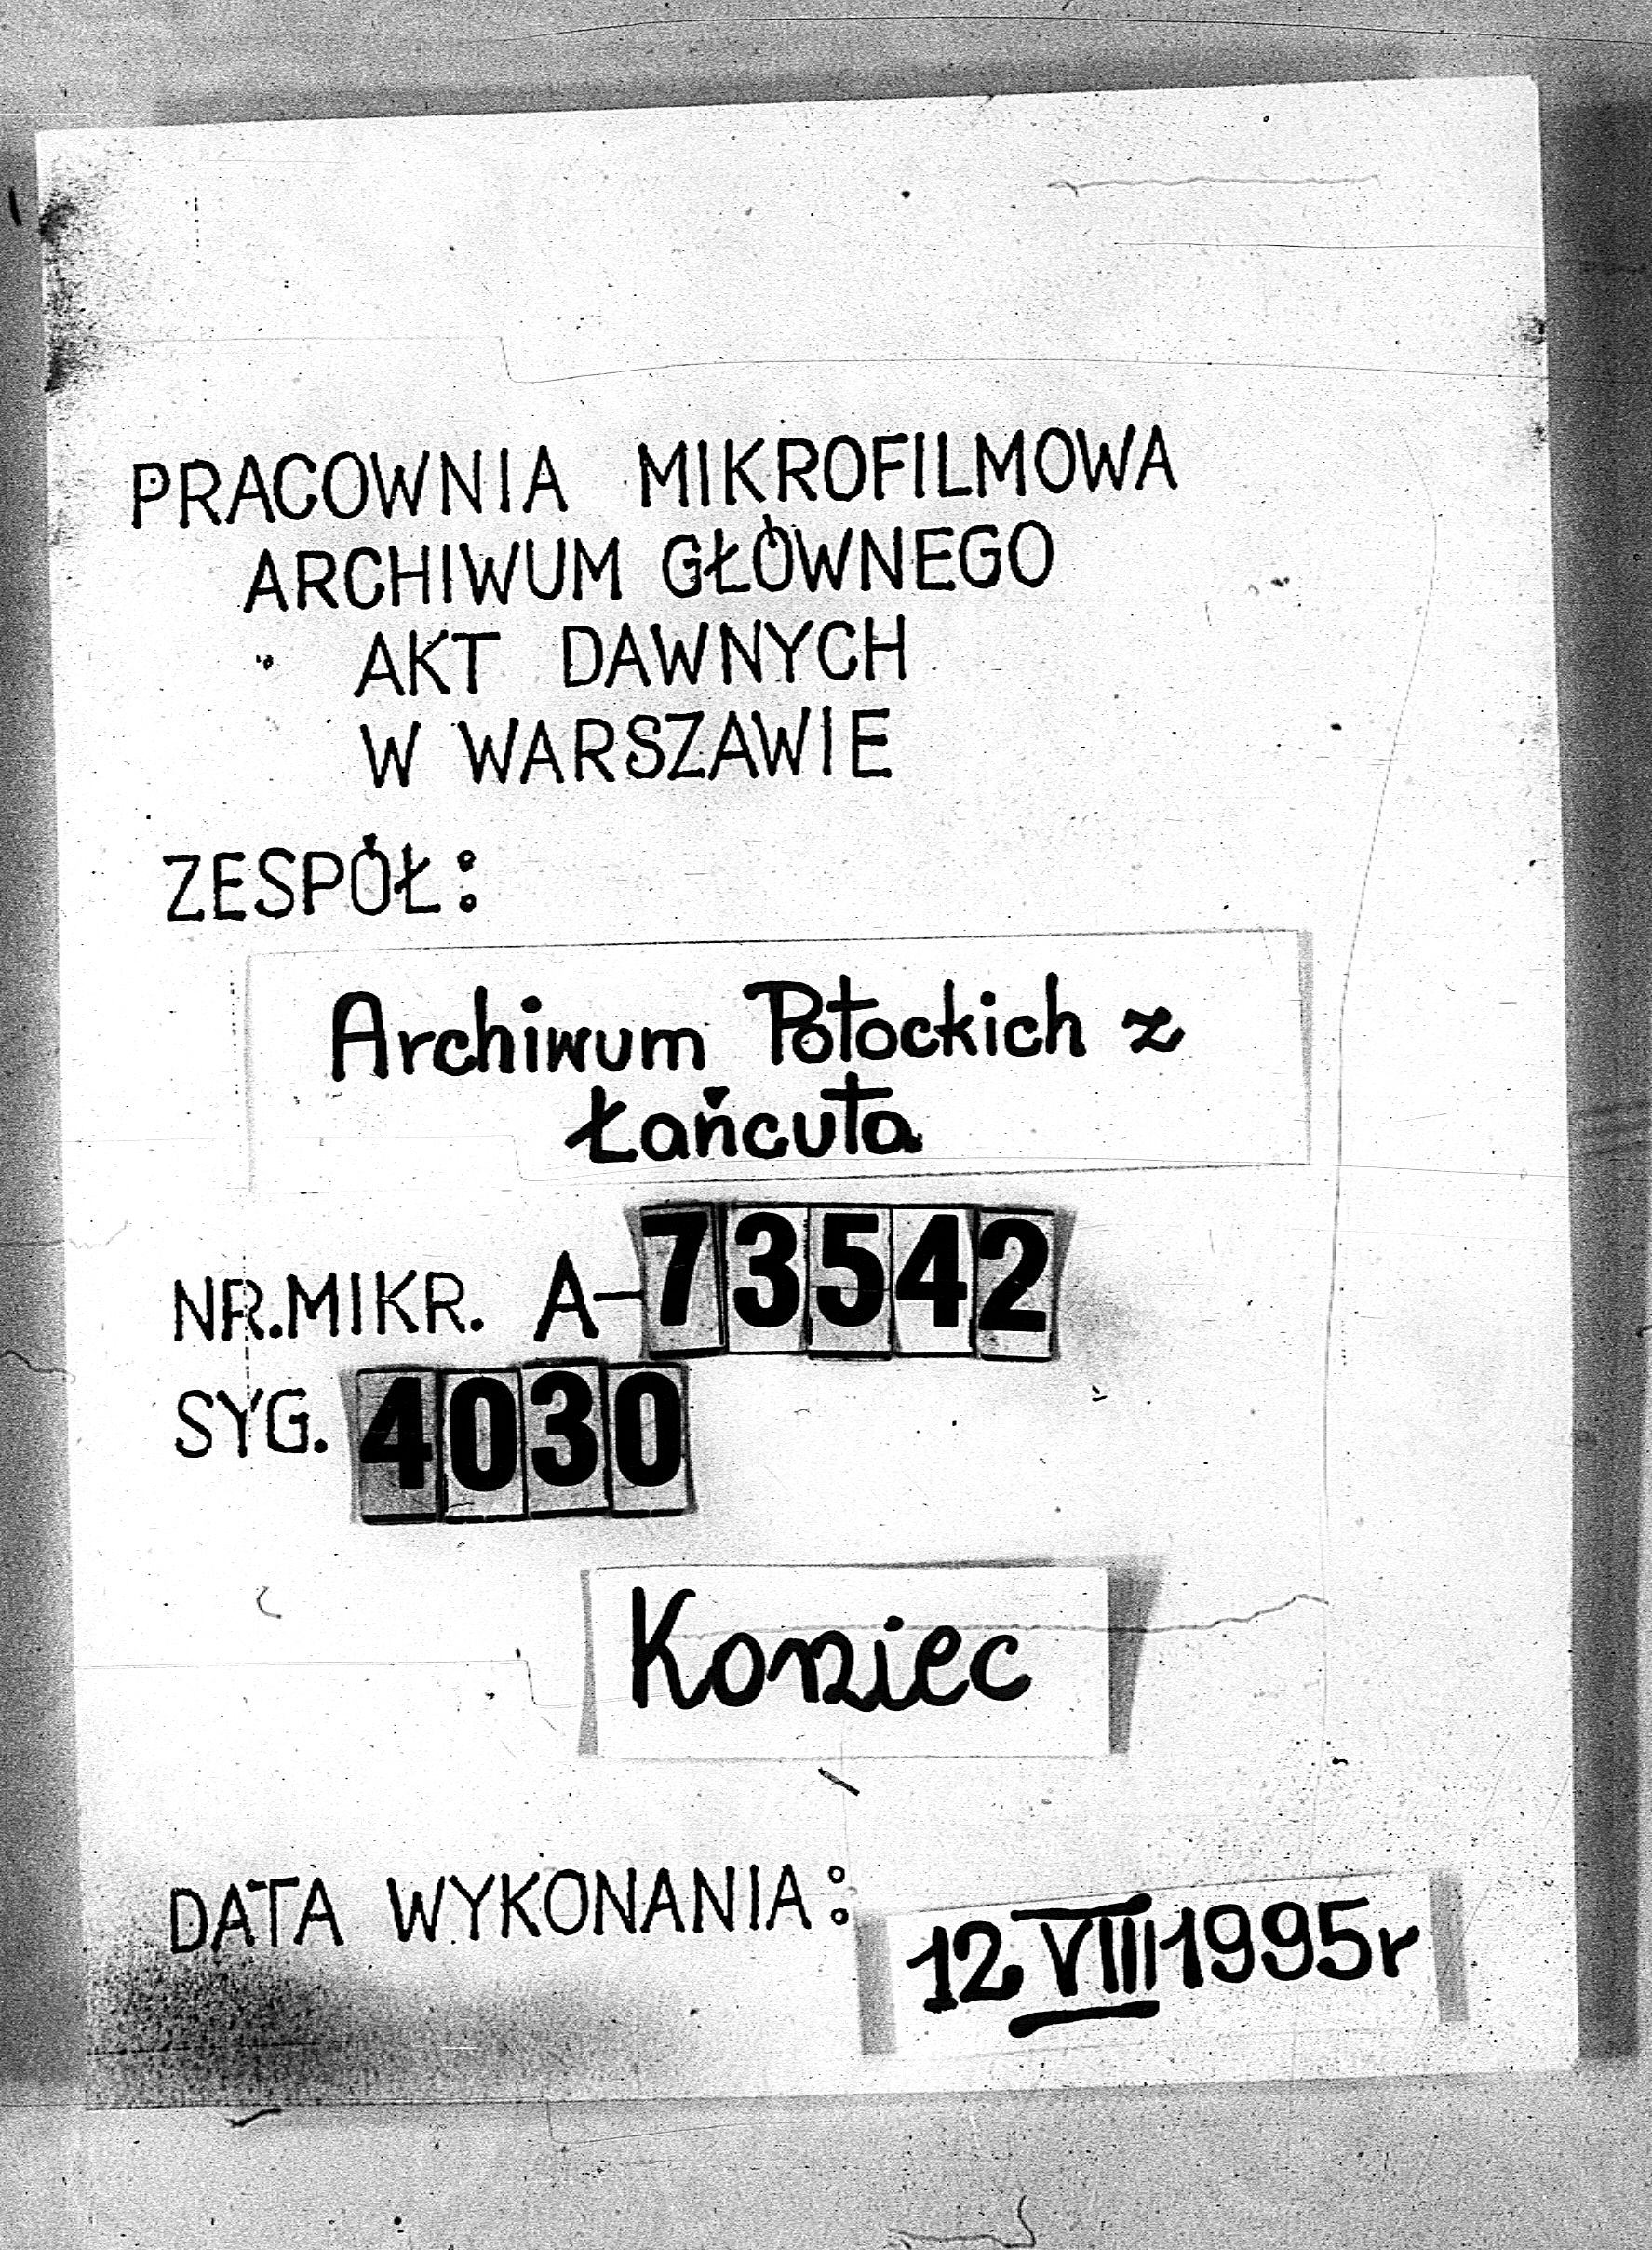 PRACOWNIA MIKROFILMOWA
ARCHIWUM GŁÓWNEGO
AKT DAWNYCH
W WARSZAWIE
ZESPÓŁ:
Archiwum Potockich z
Łańcuta
NR.MIKR. A-73542
SYG. 4030
Koniec
DATA WYKONANIA: 12 VIII 1995r